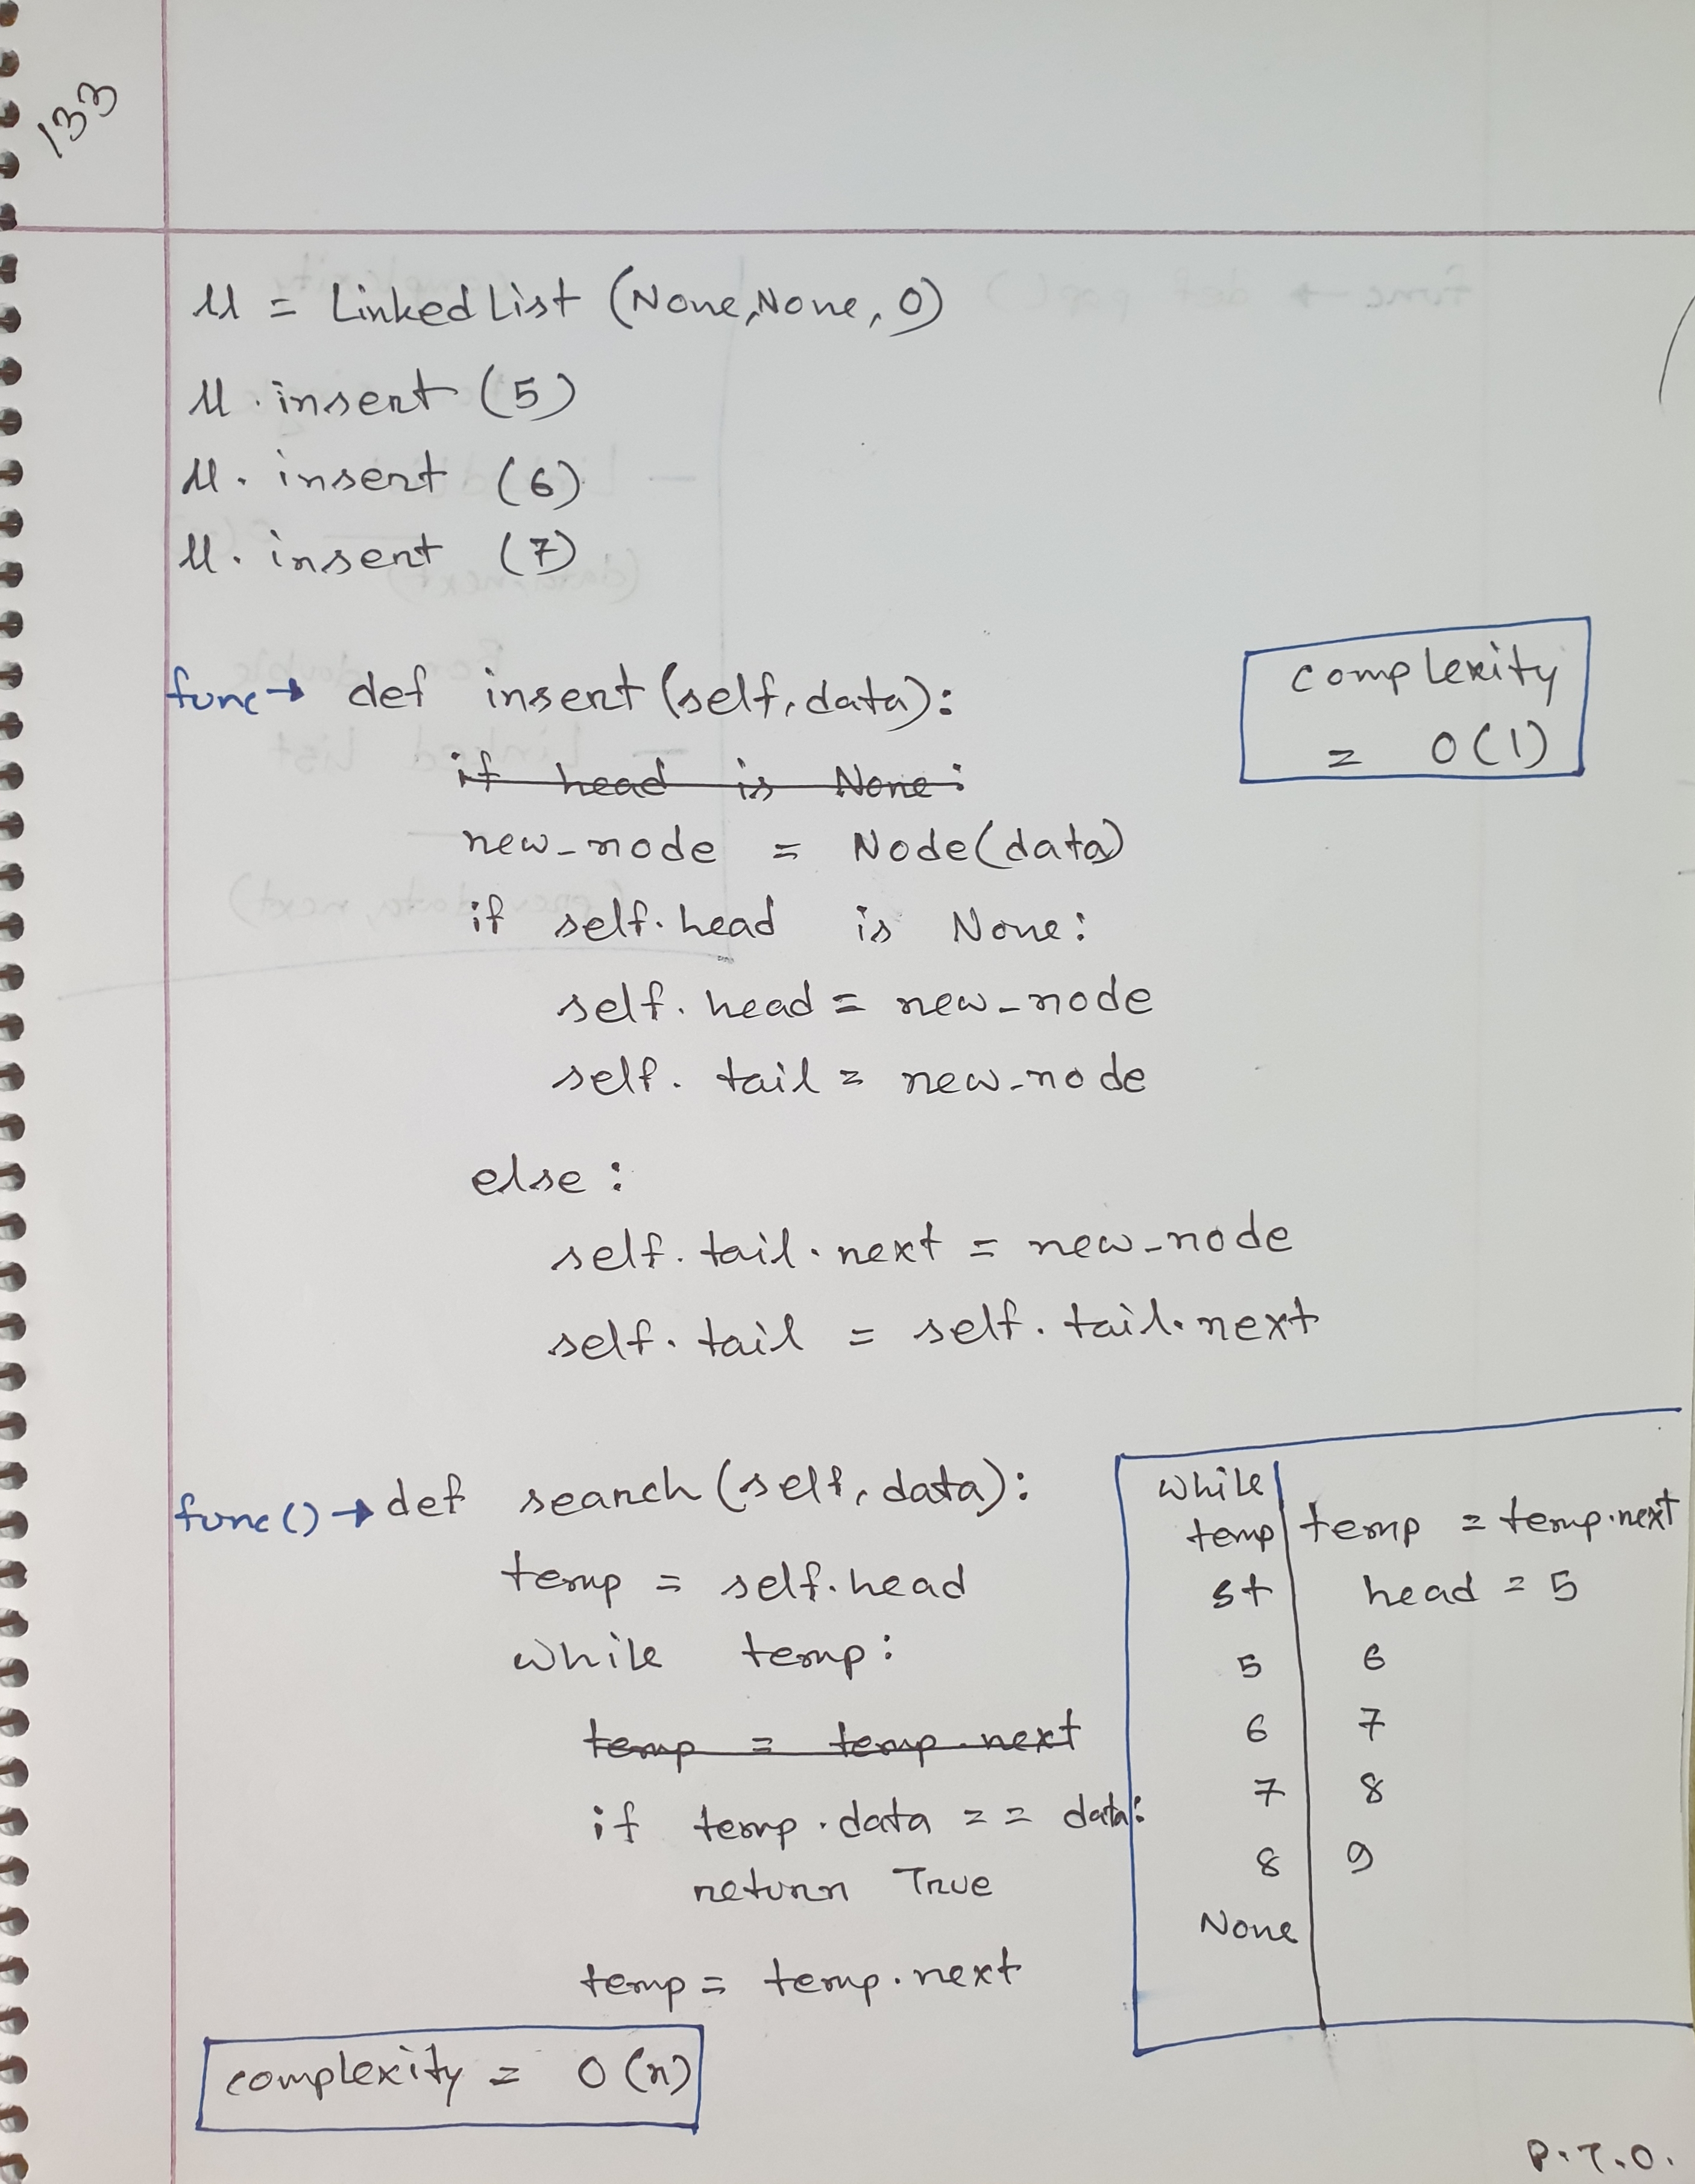 133
ll = Linked List (None, None, 0)
ll. insert (5)
ll. insert (6)
ll. insert (7)
func → def insert (self, data):
if head is None:
new_node = Node(data)
if self.head is None:
self. head = new_node
self. tail = new_node
else :
self. tail. next = new_node
self. tail = self. tail. next
complexity
= O(1)
func() → def search (self, data):
temp = self.head
while temp:
temp = temp.next
if temp.data == data:
return True
temp = temp.next
complexity = O(n)
while
temp temp = temp.next
st head = 5
5 6
6 7
7 8
8 9
None
P.T.O.